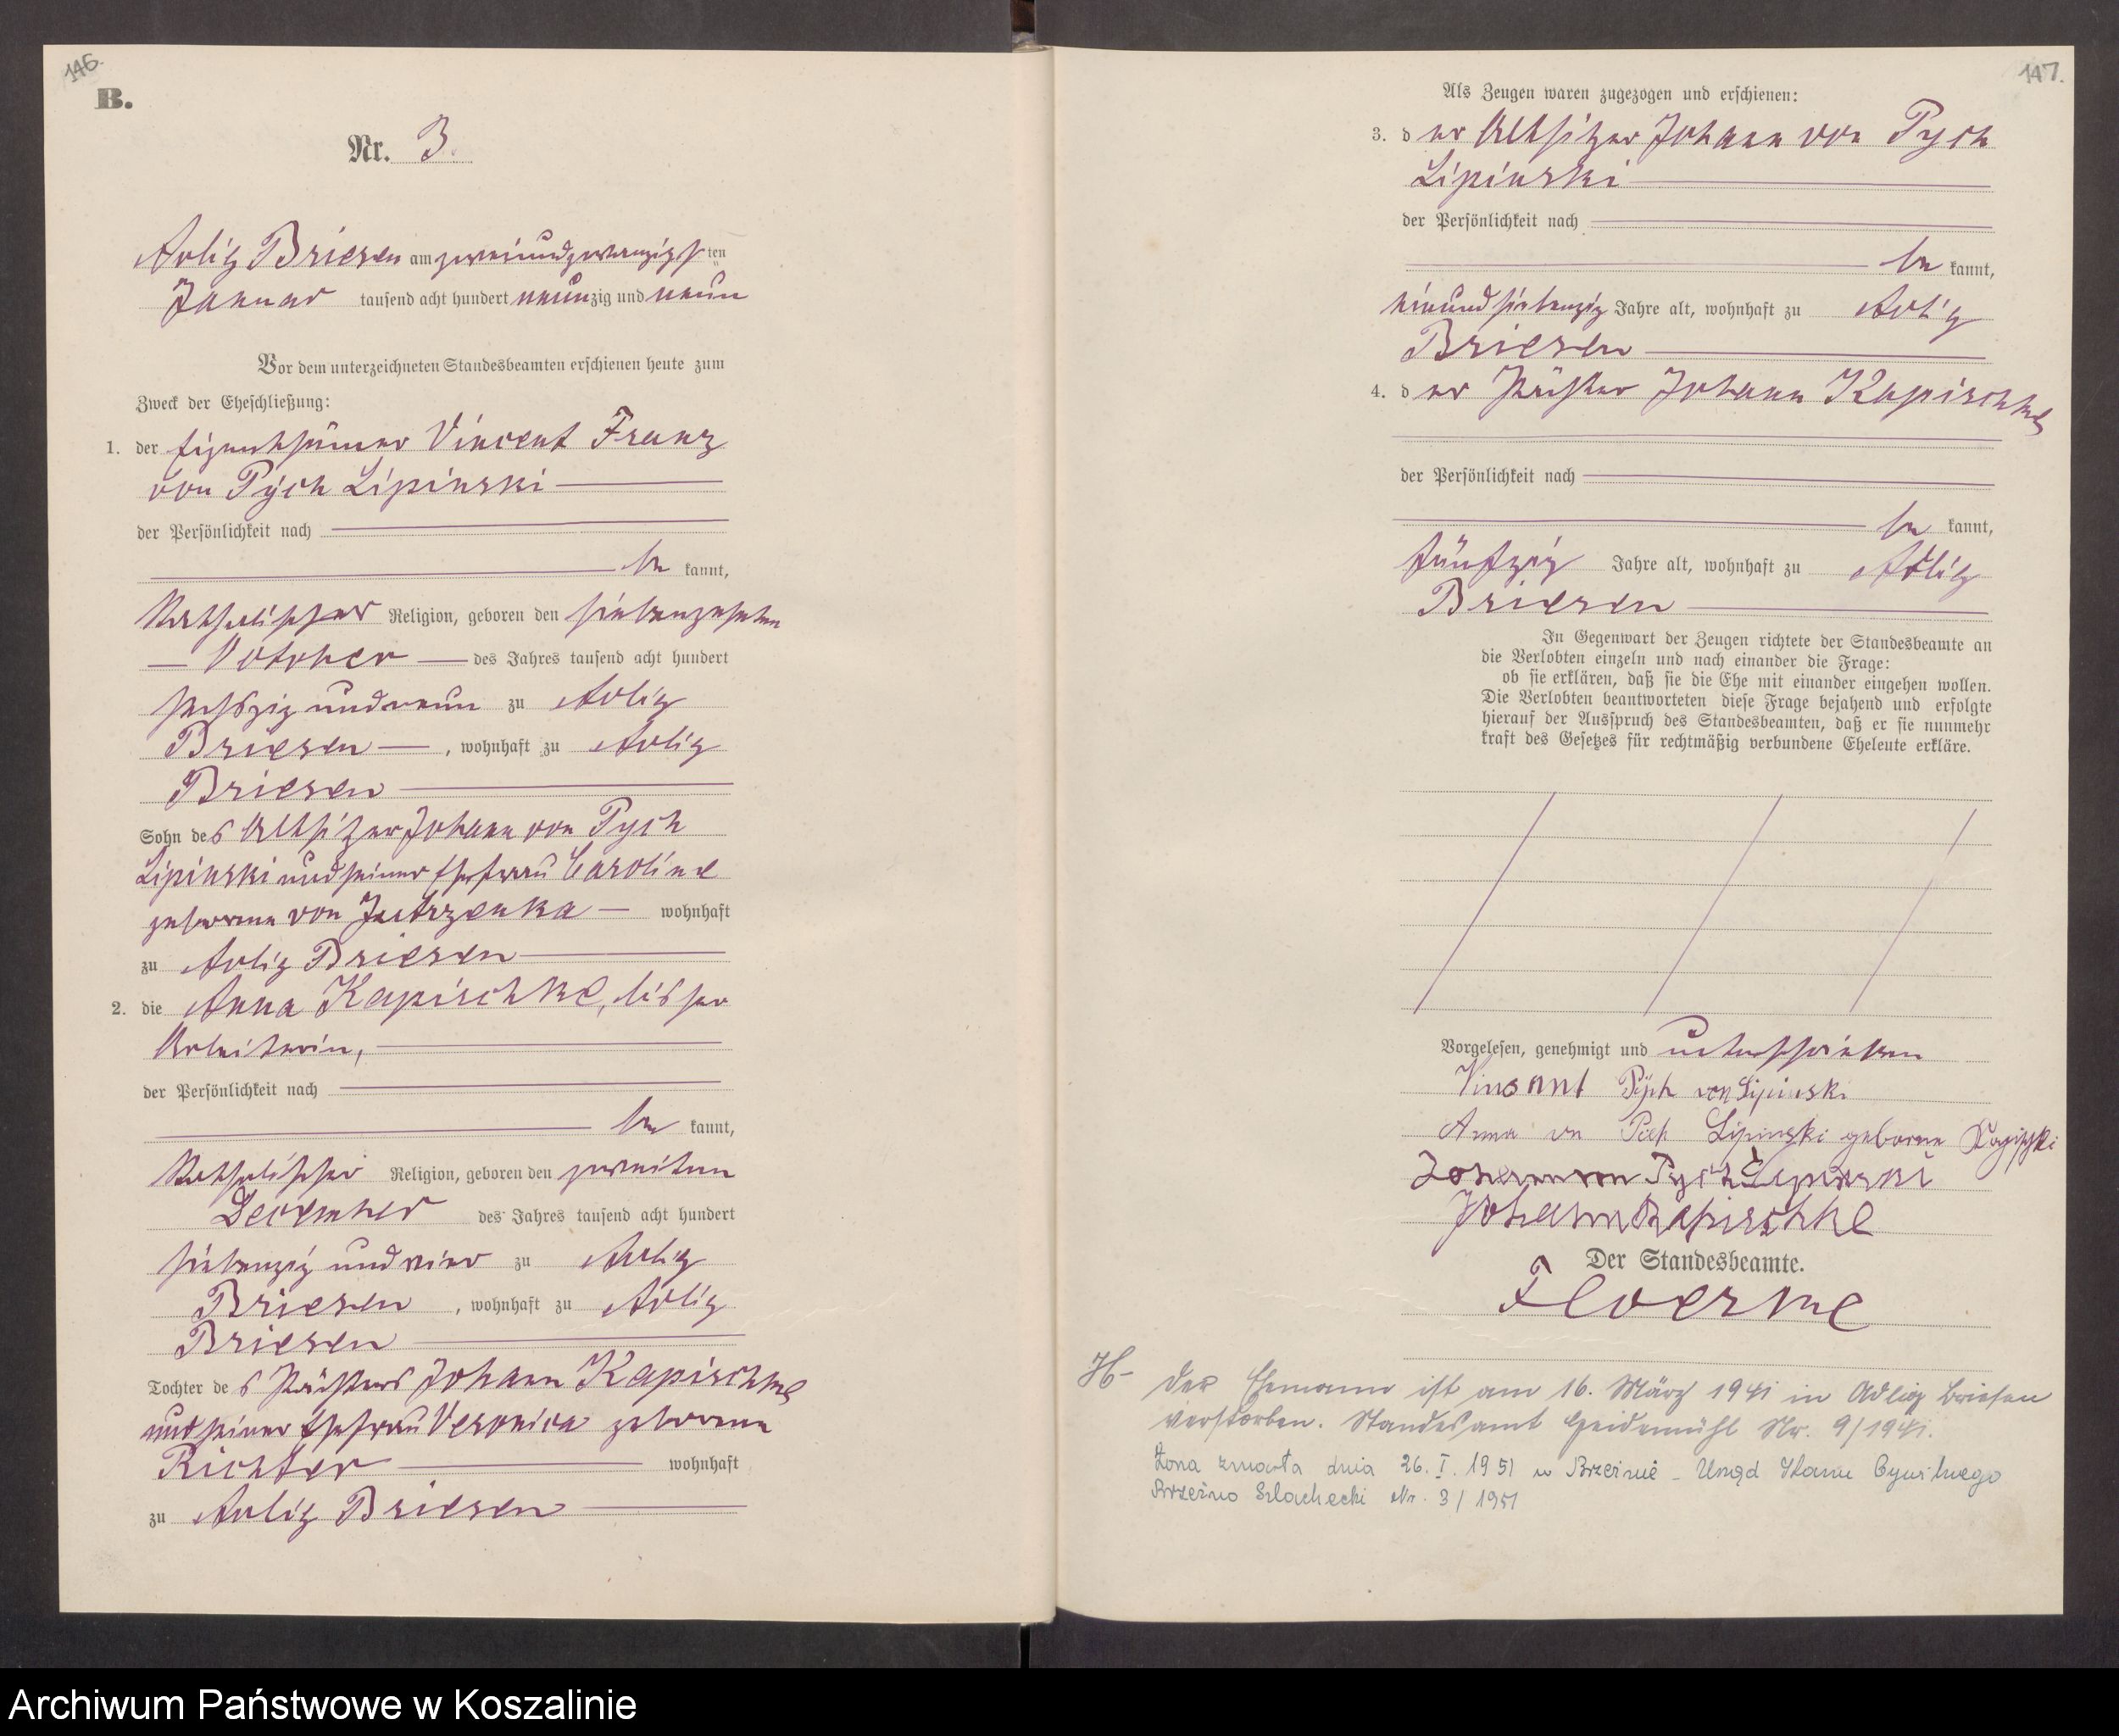 146.
B.
Nr. 3.
Adlig Briesen am zweiundzwanzigsten
Januar tausend acht hundert neunzig und neun
Vor dem unterzeichneten Standesbeamten erschienen heute zum
Zweck der Eheschließung:
1. der Eigenthümer Vincent Franz
von Pych Lipinski
der Persönlichkeit nach
be kannt,
katholischer Religion, geboren den siebenzehnten
October des Jahres tausend acht hundert
sechszig und neun zu Adlig
Briesen, wohnhaft zu Adlig
Briesen
Sohn des Altsitzer Johann von Pych
Lipinski und seiner Ehefrau Caroline
geborene von Jutrzenka wohnhaft
zu Adlig Briesen
2. die Anna Kapischke, bisher
Arbeiterin,
der Persönlichkeit nach
be kannt,
katholischer Religion, geboren den zweiten
December des Jahres tausend acht hundert
siebenzig und vier zu Adlig
Briesen, wohnhaft zu Adlig
Briesen
Tochter des Pächters Johann Kapischke
und seiner Ehefrau Veronica geborene
Richter wohnhaft
zu Adlig Briesen
147.
Als Zeugen waren zugezogen und erschienen:
3. der Altsitzer Johann von Pych
Lipinski
der Persönlichkeit nach
be kannt,
einundsiebenzig Jahre alt, wohnhaft zu Adlig
Briesen
4. der Pächter Johann Kapischke
der Persönlichkeit nach
be kannt,
fünfzig Jahre alt, wohnhaft zu Adlig
Briesen
In Gegenwart der Zeugen richtete der Standesbeamte an
die Verlobten einzeln und nach einander die Frage:
ob sie erklären, daß sie die Ehe mit einander eingehen wollen.
Die Verlobten beantworteten diese Frage bejahend und erfolgte
hierauf der Ausspruch des Standesbeamten, daß er sie nunmehr
kraft des Gesetzes für rechtmäßig verbundene Eheleute erkläre.
Vorgelesen, genehmigt und unterschrieben
Vinsent Pych von Lipinski
Anna von Pich Lipinski geborene Kapischki
Johann von Pych Lipinski
Johann Kapischke
Der Standesbeamte.
H- Der Ehemann ist am 16. März 1941 in Adlig Briesen
verstorben. Standesamt Heidemühl Nr. 9/1941.
Żona zmarła dnia 26.I.1951 w Brzeźnie - Urząd Stanu Cywilnego
Brzeźno Szlacheckie Nr. 3/1951
Archiwum Państwowe w Koszalinie